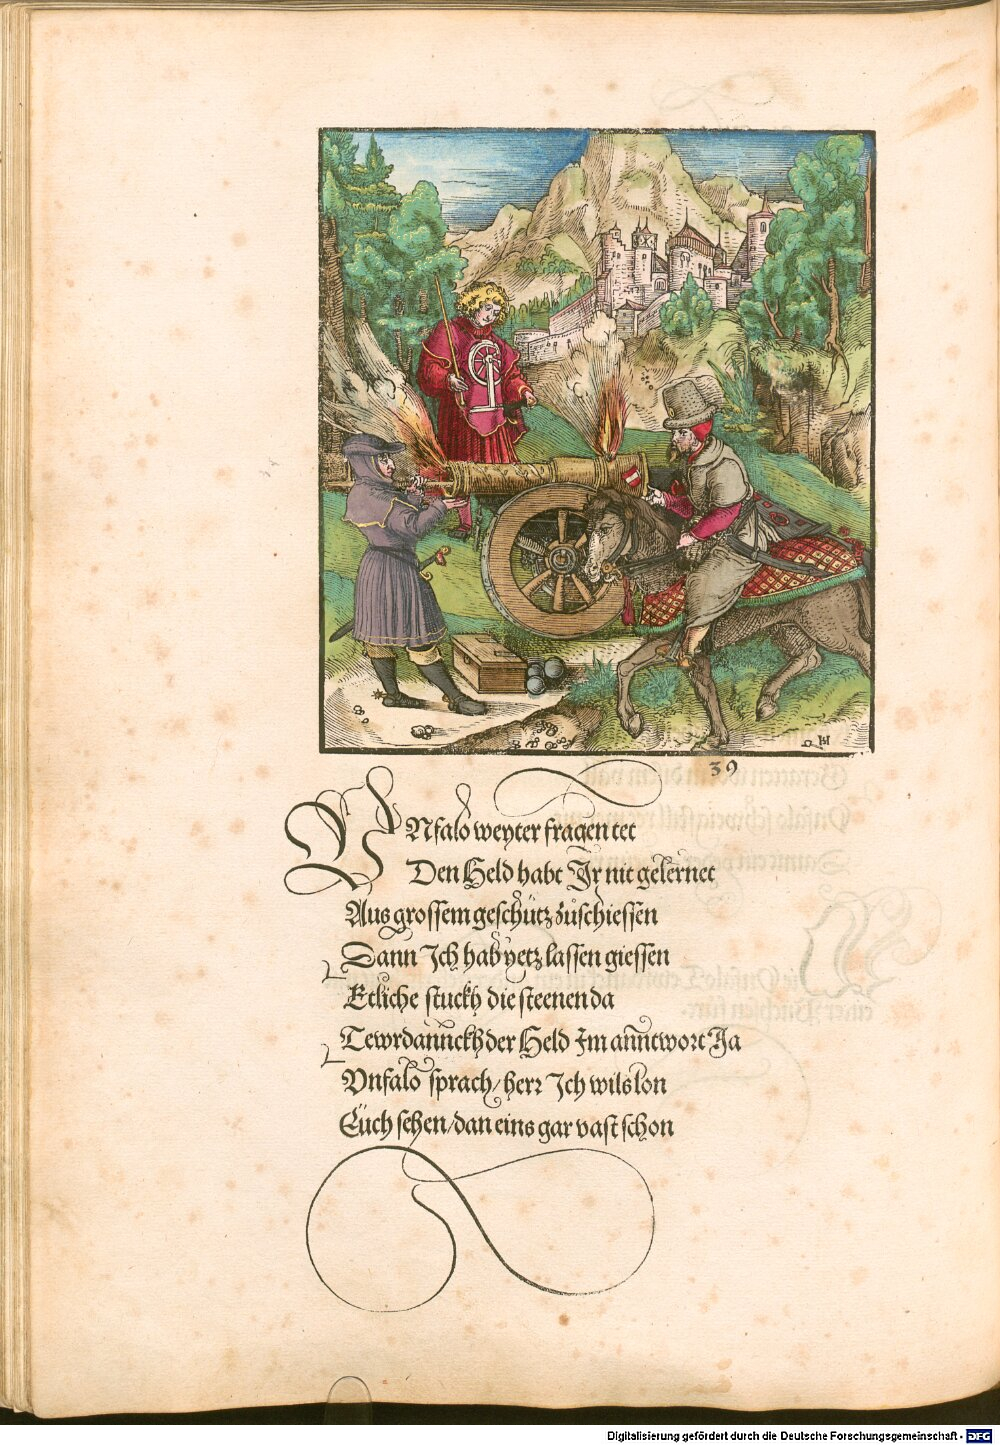 39
VNfalo weyter fragen tet
Den Held habt Ir nit gelernet
Aus grossem geschütz zuschiessen
Dann Ich hab yetz lassen giessen
Etliche stuckh die steenen da
Tewrdannckh der Held Im anntwort Ja
Vnfalo sprach/ herr Ich wils lon
Euch sehen/ dan eins gar vast schon
Digitalisierung gefördert durch die Deutsche Forschungsgemeinschaft - DFG